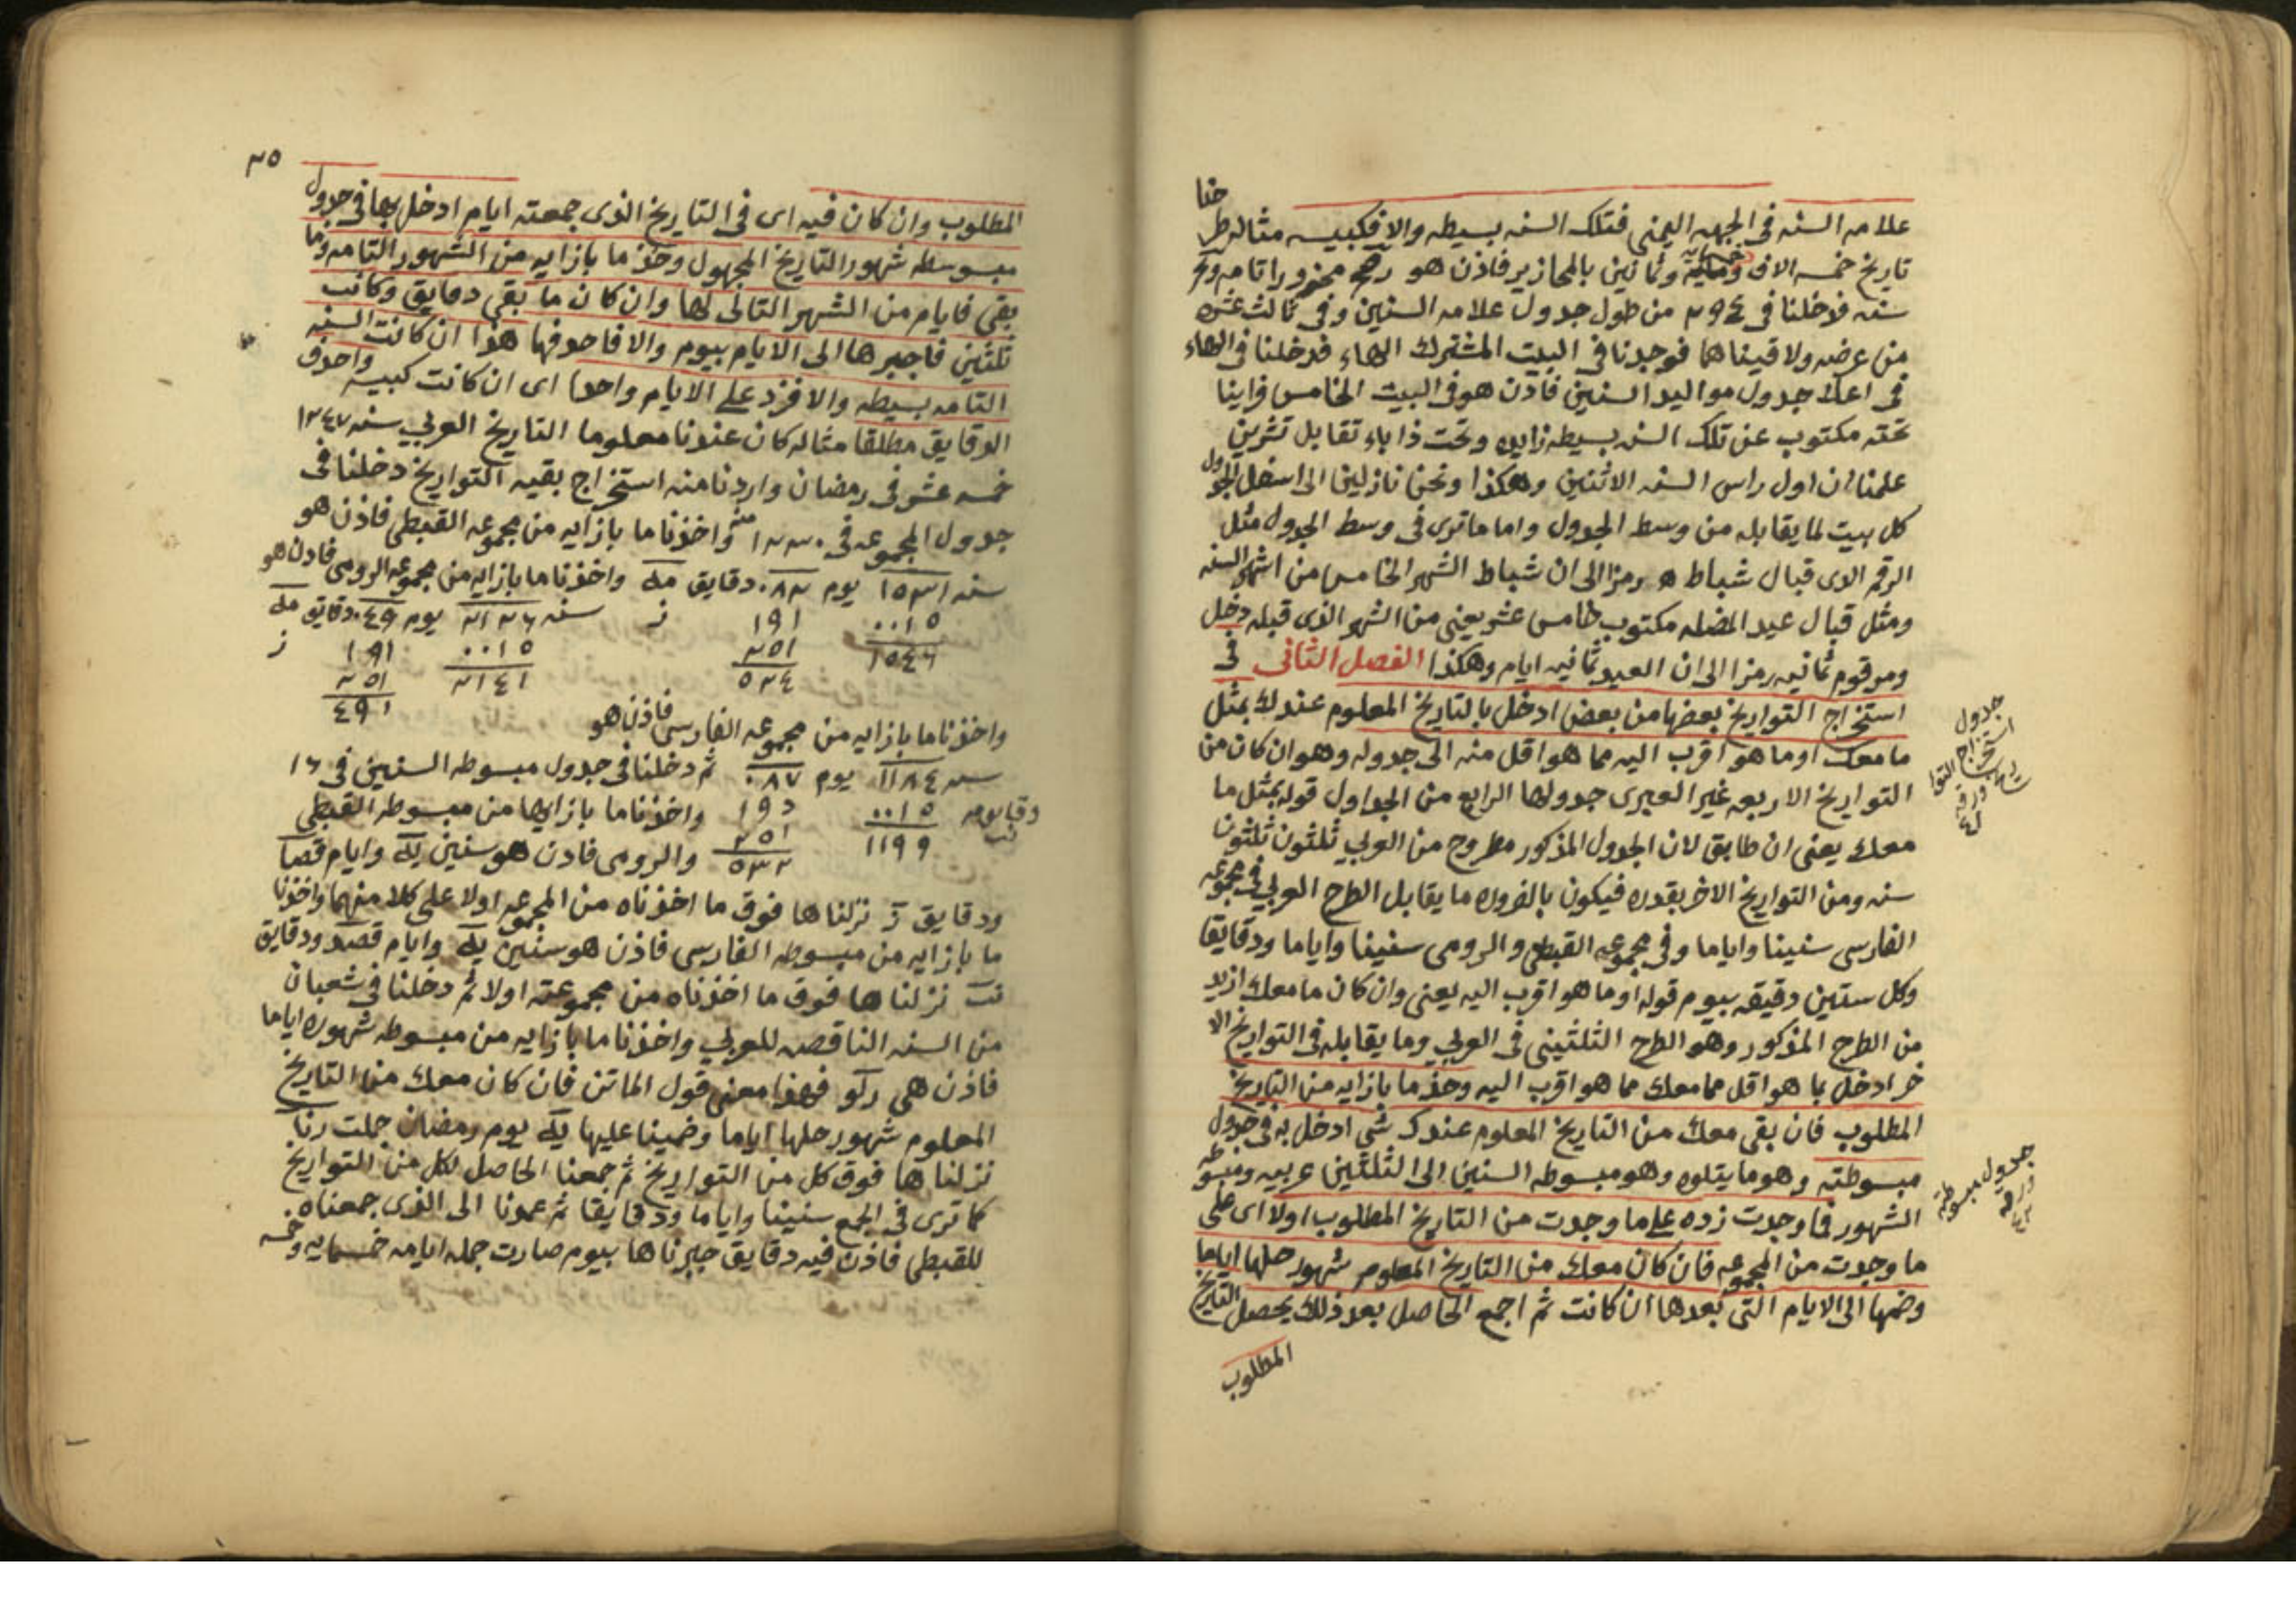 علامه السنه فى الجهه اليمنى فتلك السنه بسيطه والا فكبيسه مثاله طر
حنا
تاريخ خمسه الاف وثمانين بالمحازير فاذن هو محزورا تامه و
سنه فدخلنا فى ٢٩٤ من طول جدول علامه السنين وفى ثالث عشره
من عرضه ولاقيناهما فوجدنا فى البيت المشترك الهاء فدخلنا فى الهاء
فى اعلا جدول مواليد السنين فاذن هو فى البيت الخامس فراينا
تحته مكتوب عن تلك السنه بسيطه زايده وتحت ذا باء تقابل تشرين
علمنا ان اول راس السنه الاثنين وهكذا ونحن نازلين الى اسفل الجدول
كل بيت لما يقابله من وسط الجدول واما ما ترى فى وسط الجدول مثل
الرقم الدى قبال شباط ه رمزا الى ان شباط الشهر الخامس من اشهر السنه
ومثل قبال عيد المضله مكتوب خامس عشر يعنى من الشهر الذى قبله دخل
ومرقوم ثمانيه رمزا الى ان العيد ثمانيه ايام وهكذا الفصل الثانى فى
استخراج التواريخ بعضها من بعض ادخل بالتاريخ المعلوم عندك بمثل
ما معك او ما هو اقرب اليه مما هو اقل منه الى جدوله وهو ان كان من
التواريخ الاربعه غير العبرى جدولها الرابع من الجداول قوله بمثل ما
معك يعنى ان طابق لان الجدول المذكور مطروح من العربي ثلثون ثلثون
سنه ومن التواريخ الاخر بقدره فيكون بالضروره ما يقابل الطرح العربي فى مجموعه
الفارسى سنينا واياما وفى مجموعه القبطى والرومى سنينا واياما ودقايقا
وكل ستين دقيقه بيوم قوله او ما هو اقرب اليه يعنى وان كان ما معك ازيد
من الطرح المذكور وهو الطرح الثلثينى فى العربي وما يقابله فى التواريخ الا
خر ادخل بما هو اقل مما معك مما هو اقرب اليه وخذ ما بازايه من التاريخ
المطلوب فان بقى معك من التاريخ المعلوم عندك شى ادخل به فى جدول
مبسوطته وهو ما يتلوه وهو مبسوطه السنين الى الثلثين عربيه ومبسوطه
الشهور فما وجدت زده على ما وجدت من التاريخ المطلوب اولا اى على
ما وجدت من المجموعه فان كان معك من التاريخ المعلوم شهور حلها اياما
وضمها الى الايام التى بعدها ان كانت ثم اجمع الحاصل بعد ذلك يحصل التاريخ
المطلوب
جدول
استخراج التوا
ريخ
ورقه
جدول مبسوطة
ورقه
٣٥
المطلوب وان كان فيه اى فى التاريخ الذى جمعته ايام ادخل بها فى جدول
مبسوطه شهور التاريخ المجهول وخذ ما بازايه من الشهور التامه وما
بقى فايام من الشهر التالى لها وان كان ما بقى دقايق وكانت
ثلثين فاجبرها الى الايام بيوم والا فاحدفها هذا ان كانت السنه
التامه بسيطه والا فزد على الايام واحدا اى ان كانت كبيسه واحدف
الدقايق مطلقا مثاله كان عندنا معلوما التاريخ العربي سنه ١٢٤٧
خمسه عشر فى رمضان واردنا منه استخراج بقيه التواريخ دخلنا فى
جدول المجموعه فى ١٢٣٠ منه واخذنا ما بازايه من مجموعه القبطى فاذن هو
سنه ١٥٣١ يوم ٠٨٢ دقايق مه واخذنا ما بازايه من مجموعه الرومى فاذن هو
سنه ٢١٢٦ يوم ٠٤٩ دقايق مه
٠٠١٥ ١٩١ ز
٢٥١
١٥٤٦ ٥٢٤
٠٠١٥ ١٩١ ز
٢٥١
٢١٤١ ٤٩١
واخذنا ما بازايه من مجموعه الفارسى فاذن هو
سنه ١١٨٤ يوم ٠٨٧ ثم دخلنا فى جدول مبسوطه السنين فى ١٦
٠٠١٥ واخذنا ما بازايها من مبسوطه القبطى
٢٥١
١١٩٩ ٥٣٢ والرومى فاذن هو سنين يه وايام قصا
ودقايق ز نزلناها فوق ما اخذناه من المجموعه اولا على كلا منهما واخذنا
ما بازايه من مبسوطه الفارسى فاذن هو سنين يه وايام قصد ودقايق
نزلناها فوق ما اخذناه من مجموعته اولا ثم دخلنا فى شعبان
من السنه الناقصه للعربي واخذنا ما بازايه من مبسوطه شهوره اياما
فاذن هى رلو فهذا معنى قول الماتن فان كان معك من التاريخ
المعلوم شهور حلها اياما وضمينا عليها يه يوم رمضان جملت رنا
نزلناها فوق كل من التواريخ ثم جمعنا الحاصل لكل من التواريخ
كما ترى فى الجمع سنينا واياما ودقايقا ثم عمدنا الى الذى جمعناه
للقبطى فاذن فيه دقايق جبرناها بيوم صارت جمله ايامه خمسمايه وخمسه